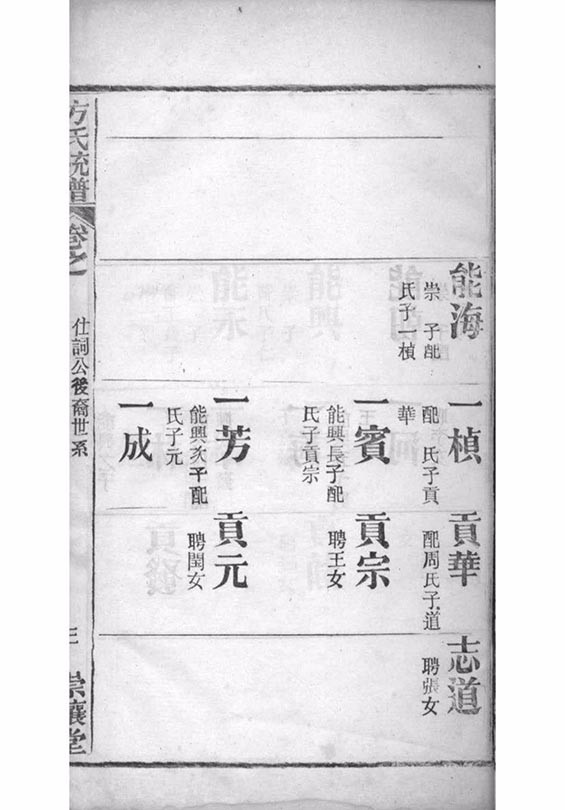 能海
崇 子配
氏子一楨
一楨
配 氏子貢
華
貢華
配周氏子道
志道
聘張女
一賓
能興長子配
氏子貢宗
貢宗
聘王女
一芳
能興次子配
氏子元
貢元
聘閏女
一成
方氏統譜
卷之
仕詞公後裔世系
三
崇讓堂